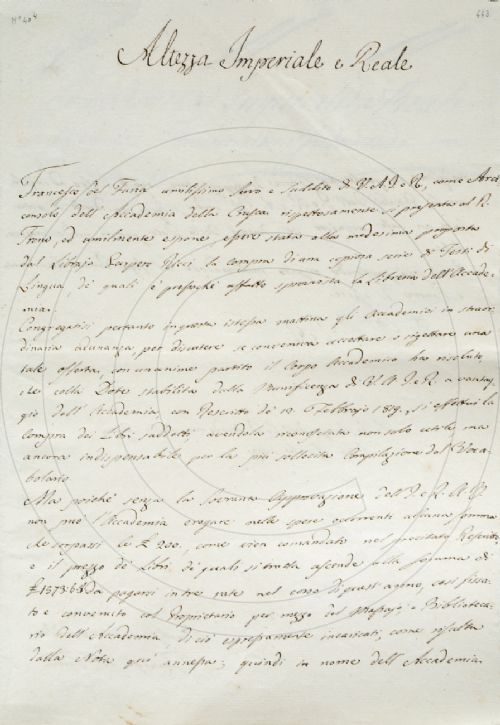 N° 404
Altezza Imperiale e Reale
Francesco Del Furia umilissimo servo e suddito di V. A. I. e R., come Arci
console dell'Accademia della Crusca rispettosamente si presenta al R.
Trono, ed umilmente espone essere stata alla medesima proposta
dal Librajo Gaspero Ricci la compra di una copiosa serie di Testi di
Lingua, de' quali è presochè affatto sprovvista la Libreria dell'Accade-
mia.
Congregatisi pertanto in questa istessa mattina gli Accademici in straor
dinaria adunanza, per discutere se conveniva accettare o rigettare una
tale offerta, con unanime partito il Corpo Accademico ha risoluto,
che colla Dote stabilita dalla Munificenza di V. A. I. e R. a vantag
gio dell'Accademia con Rescritto de' 12. Febbrajo 1819., si effettui la
compra dei Libri suddetti, avendola riconosciuta non solo utile, ma
ancora indispensabile per la più sollecita Compilazione del Voca-
bolario.
Ma poichè senza la Sovrana Approvazione dell'I. e R. A. V.
non può l'Accademia erogare nelle spese occorrenti alcuna somma
che sorpassi le £ 200., come vien comandato nel precitato Rescritto,
e il prezzo de' Libri de' quali si tratta ascende alla somma di
da pagarsi in tre rate nel corso di quest'anno, così fissa-
to e convenuto col Proprietario per mezzo del Massajo e Biblioteca-
rio dell'Accademia di ciò espressamente incaricati, come risulta
dalla Nota quì annessa; quindi in nome dell'Accademia